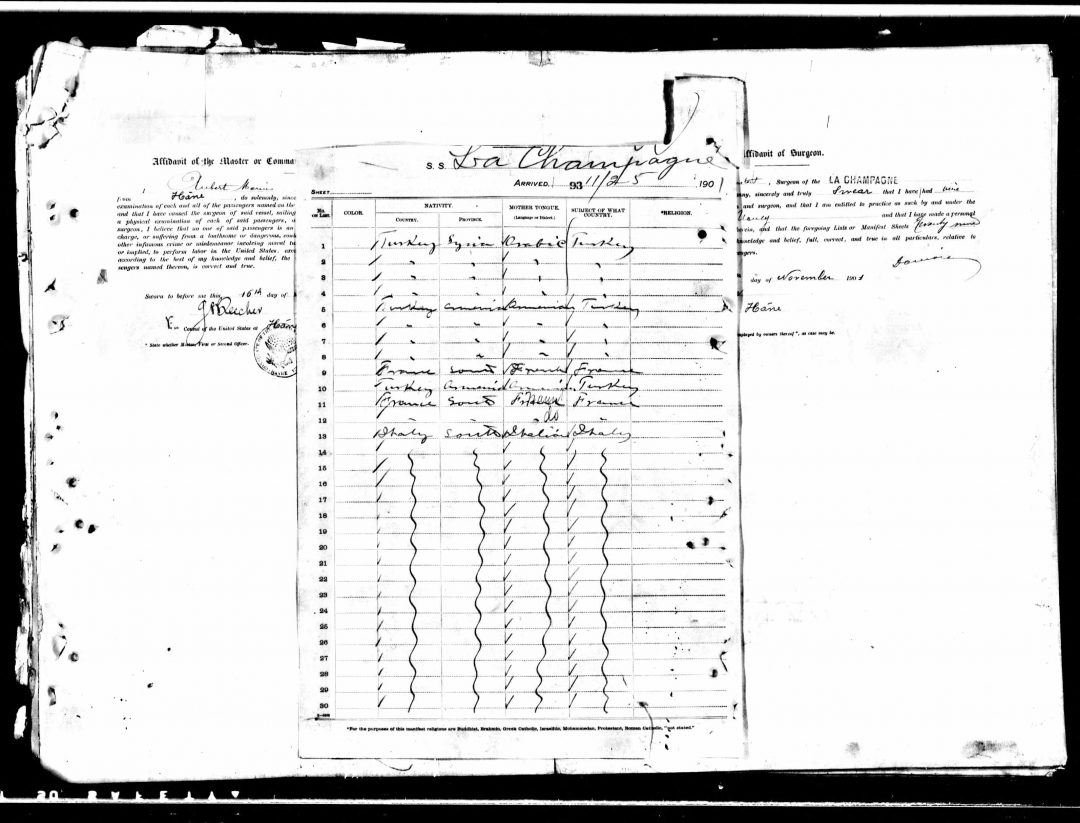 Affidavit of the Master or Comma
I Aubert Marie
from Hâvre, do solemnly, since
examination of each and all of the passengers named on the
and that I have caused the surgeon of said vessel, sailing
a physical examination of each of said passengers, a
surgeon, I believe that no one of said passengers is an
charge, or suffering from a loathsome or dangerous, con
other infamous crime or misdemeanor involving moral tu
or implied, to perform labor in the United States. and
according to the best of my knowledge and belief, the
sengers named therein, is correct and true.
Sworn to before me this 16th day of
Consul of the United States at Hâvre
* State whether Master, First or Second Officer.
S. S. La Champagne
ARRIVED, 93 11/25 1901
SHEET
No. on List. COLOR. NATIVITY. MOTHER TONGUE. (Language or Dialect.) SUBJECT OF WHAT COUNTRY. *RELIGION.
COUNTRY. PROVINCE.
1 Turkey Syria Arabic Turkey
2 " " " "
3 " " " "
4 " " " "
5 Turkey Armenia Armenian Turkey
6 " " " "
7 " " " "
8 " " " "
9 France South French France
10 Turkey Armenia Turkey
11 France South France
12 " " do "
13 Ithaly South Ithalian Ithaly
14
15
16
17
18
19
20
21
22
23
24
25
26
27
28
29
30
*For the purposes of this manifest religions are Buddhist, Brahmin, Greek Catholic, Israelite, Mohammedan, Protestant, Roman Catholic, "not stated."
ffidavit of Surgeon.
, Surgeon of the LA CHAMPAGNE
mny, sincerely and truly Swear that I have had
and surgeon, and that I am entitled to practice as such by and under the
Nancy and that I have made a personal
herein, and that the foregoing Lists or Manifest Sheets (twenty nine
nowledge and belief, full, correct, and true in all particulars, relative to
ngers.
day of November 1901
Hâvre
mployed by owners thereof", as case may be.